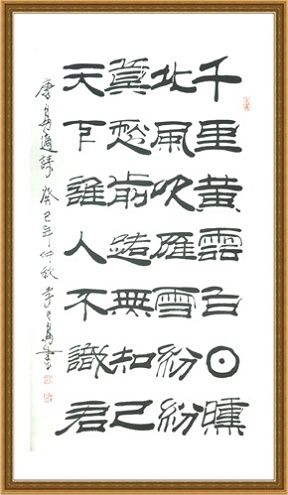 千里黄雲白日曛
北風吹雁雪紛紛
莫愁前路無知己
天下誰人不識君
唐高適詩 癸巳年仲秋 李書